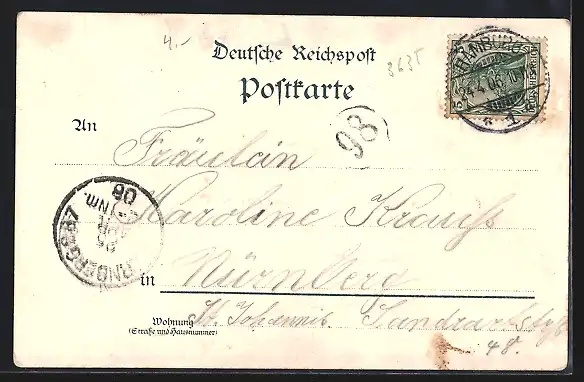 4.-
Deutsche Reichspost
3635
Postkarte
HAMBURG
24.4.06.
* 1
98
An
Fräulein
Karoline Krauss
in Nürnberg
Wohnung
(Straße und Hausnummer)
St. Johannis. Sandrartstr
48.
25
APR
NM.
06